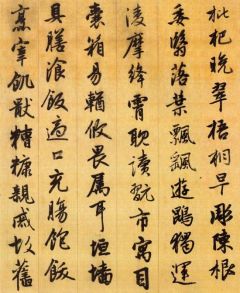 枇杷晚翠梧桐早彫陳根
委翳落葉飄飖遊鵾獨運
淩摩絳霄耽讀翫市寓目
囊箱易輶攸畏屬耳垣墻
具膳湌飯適口充腸飽飫
烹宰飢猒糟糠親戚故舊